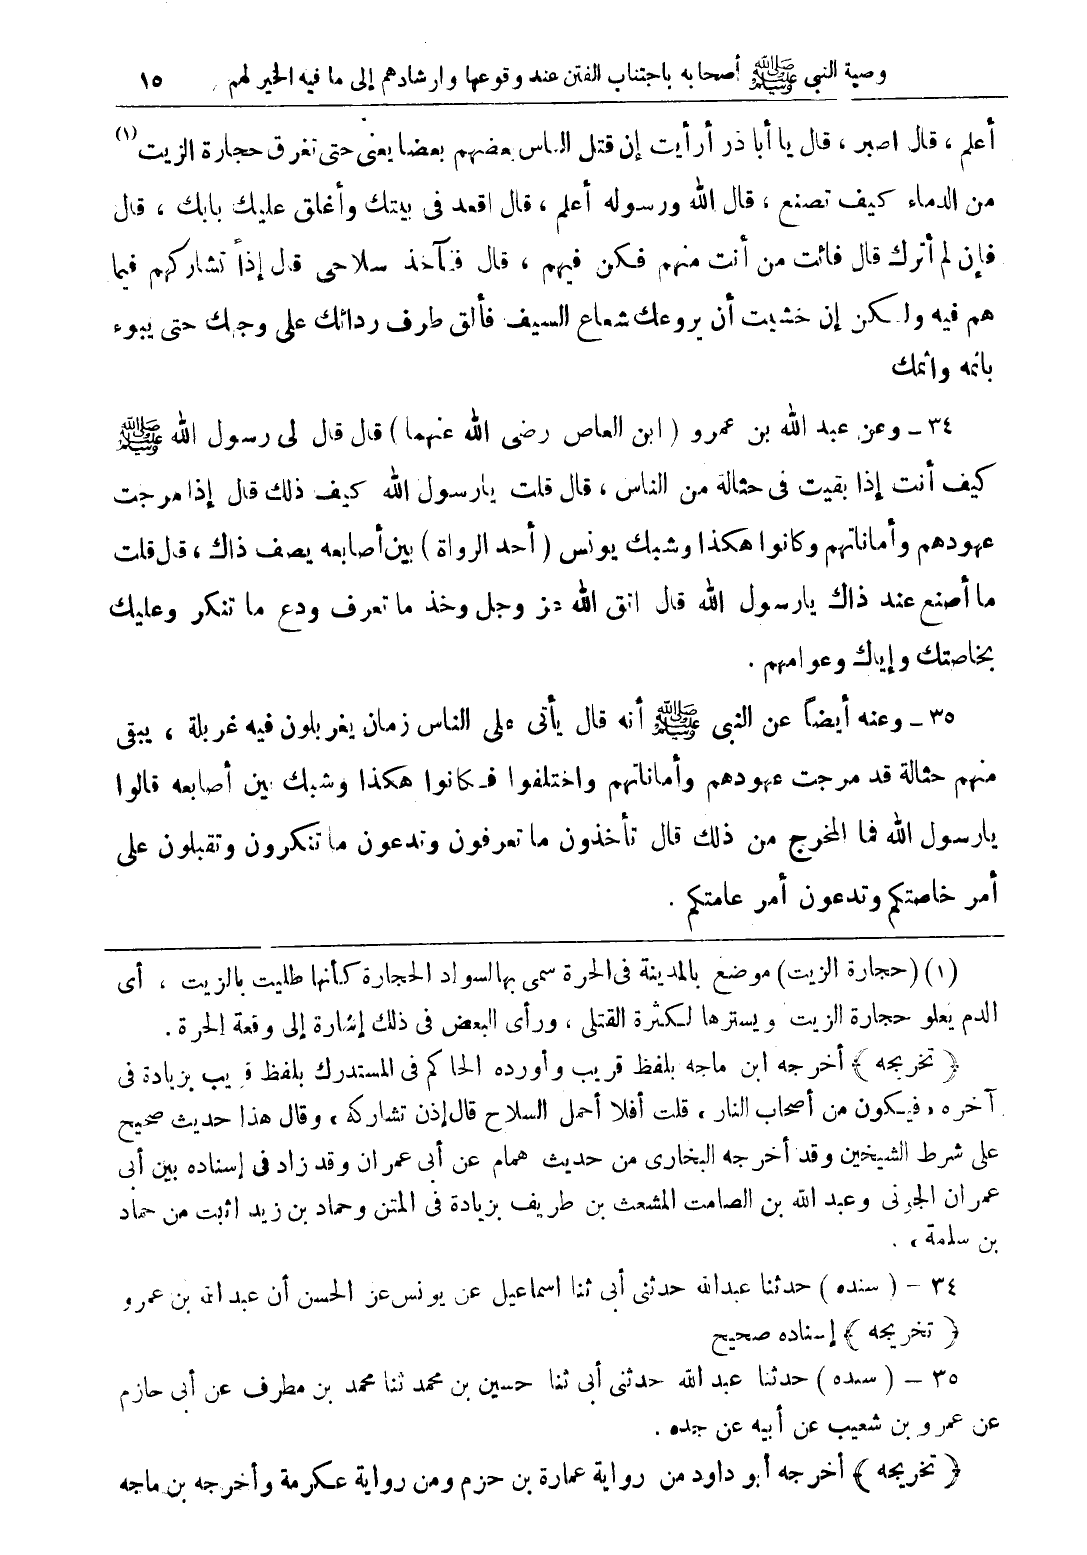 وصية النبي ﷺ أصحابه باجتناب الفتن عند وقوعها وارشادهم إلى ما فيه الخير لهم ١٥
أعلم ، قال اصبر ، قال يا أبا ذر أرأيت إن قتل الناس بعضهم بعضا يعنى حتى تغرق حجارة الزيت (١)
من الدماء كيف تصنع ، قال الله ورسوله أعلم ، قال اقعد فى بيتك وأغلق عليك بابك ، قال
فإن لم أترك قال فائت من أنت منهم فكن فيهم ، قال فآخذ سلاحى قال إذاً تشاركهم فيما
هم فيه ولكن إن خشيت أن يروعك شعاع السيف فألق طرف ردائك على وجهك حتى يبوء
بائمه واثمك
٣٤ ــ وعن عبد الله بن عمرو ( ابن العاص رضى الله عنهما ) قال قال لى رسول الله ﷺ
كيف أنت إذا بقيت فى حثالة من الناس ، قال قلت يارسول الله كيف ذلك قال إذا مرجت
عهودهم وأماناتهم وكانوا هكذا وشبك يونس ( أحد الرواة ) بين أصابعه يصف ذاك ، قال قلت
ما أصنع عند ذاك يارسول الله قال اتق الله عز وجل وخذ ما تعرف ودع ما تنكر وعليك
بخاصتك وإياك وعوامهم .
٣٥ ــ وعنه أيضاً عن النبى ﷺ أنه قال يأتى على الناس زمان يغربلون فيه غربلة ، يبقى
منهم حثالة قد مرجت عهودهم وأماناتهم واختلفوا فكانوا هكذا وشبك بين أصابعه قالوا
يارسول الله فما المخرج من ذلك قال تأخذون ما تعرفون وتدعون ما تنكرون وتقبلون على
أمر خاصتكم وتدعون أمر عامتكم .
(١) (حجارة الزيت) موضع بالمدينة فى الحرة سمى بها لسواد الحجارة كأنها طليت بالزيت ، أى
الدم يعلو حجارة الزيت ويسترها لكثرة القتلى ، ورأى البعض فى ذلك إشارة إلى وقعة الحرة .
﴿ تخريجه ﴾ أخرجه ابن ماجه بلفظ قريب وأورده الحاكم فى المستدرك بلفظ قريب بزيادة فى
آخره ، فيكون من أصحاب النار ، قلت أفلا أحمل السلاح قال إذن تشاركه ، وقال هذا حديث صحيح
على شرط الشيخين وقد أخرجه البخارى من حديث همام عن أبى عمران وقد زاد فى إسناده بين أبى
عمران الجونى وعبد الله بن الصامت المشعث بن طريف بزيادة فى المتن وحماد بن زيد اثبت من حماد
بن سلمة ، .
٣٤ – ( سنده ) حدثنا عبدالله حدثنى أبى ثنا اسماعيل عن يونس عن الحسن أن عبد الله بن عمرو
﴿ تخريجه ﴾ إسناده صحيح
٣٥ – ( سنده ) حدثنا عبد الله حدثنى أبى ثنا حسين بن محمد ثنا محمد بن مطرف عن أبى حازم
عن عمرو بن شعيب عن أبيه عن جده .
﴿ تخريجه ﴾ أخرجه أبو داود من رواية عمارة بن حزم ومن رواية عكرمة وأخرجه بن ماجه